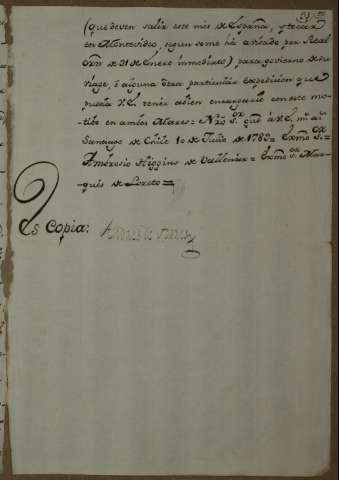 (que deven salir este mes de España, y tocar
en Montevideo, segun se me há avisado por Real
orn de 21 de Enero inmediato), para govierno de su
viage, ó alguna otra particular expedicion que
pueda V.E. tener abien encargarle con este mo-
tibo en ambos Mares= Nro Sor gue á V.E. ms as
Santiago de Chile 10 de de 1789= Exmo Sor=
Ambrosio Higgins de Vallenar= Exmo Sor Mar-
qués de Loreto=
Es Copia: